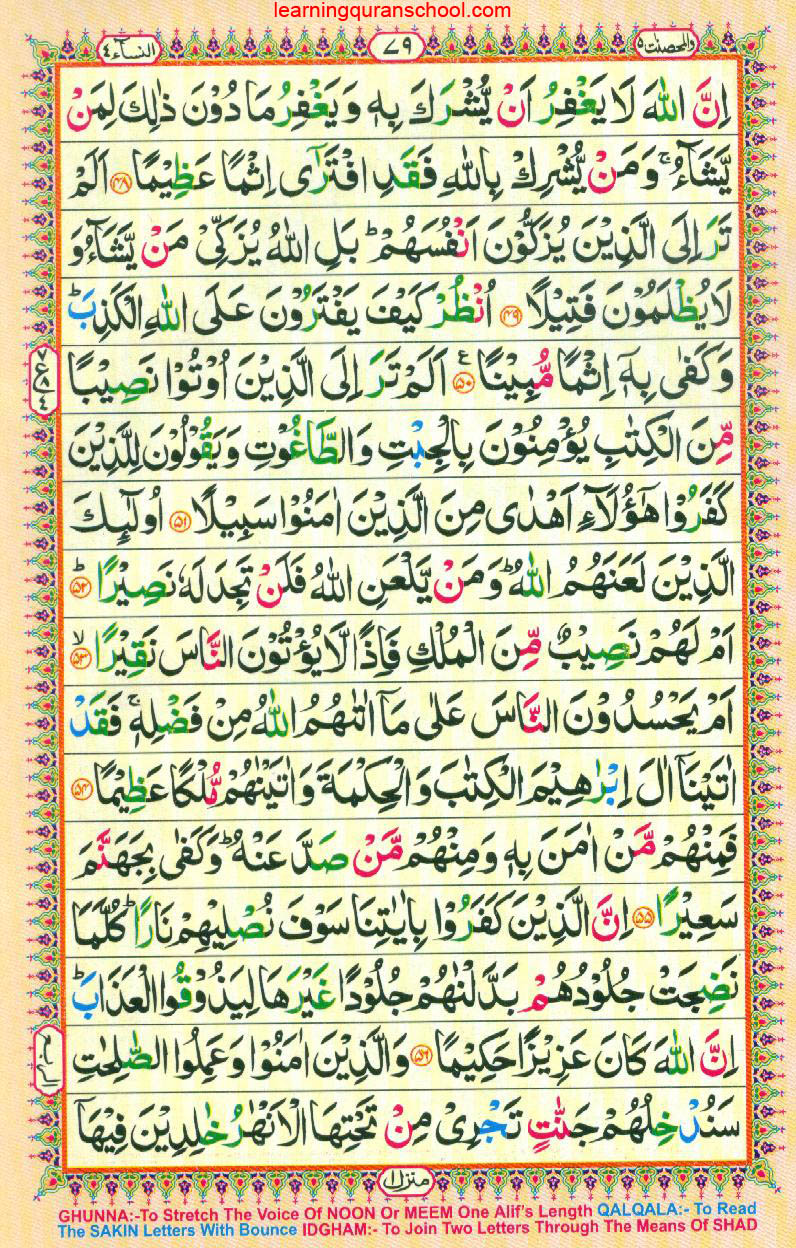 learningquranschool.com
والمحصنت ٥
٧٩
النسآء ٤
اِنَّ اللّٰهَ لَا يَغْفِرُ اَنْ يُّشْرَكَ بِهٖ وَيَغْفِرُ مَا دُوْنَ ذٰلِكَ لِمَنْ
يَّشَآءُ ۚ وَمَنْ يُّشْرِكْ بِاللّٰهِ فَقَدِ افْتَرٰٓى اِثْمًا عَظِيْمًا ﴿۴۸﴾ اَلَمْ
تَرَ اِلَى الَّذِيْنَ يُزَكُّوْنَ اَنْفُسَهُمْ ؕ بَلِ اللّٰهُ يُزَكِّىْ مَنْ يَّشَآءُ وَ
لَا يُظْلَمُوْنَ فَتِيْلًا ﴿۴۹﴾ اُنْظُرْ كَيْفَ يَفْتَرُوْنَ عَلَى اللّٰهِ الْكَذِبَ ؕ
وَكَفٰى بِهٖۤ اِثْمًا مُّبِيْنًا ﴿۵۰﴾ ع اَلَمْ تَرَ اِلَى الَّذِيْنَ اُوْتُوْا نَصِيْبًا
مِّنَ الْكِتٰبِ يُؤْمِنُوْنَ بِالْجِبْتِ وَالطَّاغُوْتِ وَيَقُوْلُوْنَ لِلَّذِيْنَ
كَفَرُوْا هٰٓؤُلَآءِ اَهْدٰى مِنَ الَّذِيْنَ اٰمَنُوْا سَبِيْلًا ﴿۵۱﴾ اُولٰٓئِكَ
الَّذِيْنَ لَعَنَهُمُ اللّٰهُ ؕ وَمَنْ يَّلْعَنِ اللّٰهُ فَلَنْ تَجِدَ لَهٗ نَصِيْرًا ﴿۵۲﴾ ؕ
اَمْ لَهُمْ نَصِيْبٌ مِّنَ الْمُلْكِ فَاِذًا لَّا يُؤْتُوْنَ النَّاسَ نَقِيْرًا ﴿۵۳﴾ ۙ
اَمْ يَحْسُدُوْنَ النَّاسَ عَلٰى مَاۤ اٰتٰىهُمُ اللّٰهُ مِنْ فَضْلِهٖ ۚ فَقَدْ
اٰتَيْنَاۤ اٰلَ اِبْرٰهِيْمَ الْكِتٰبَ وَالْحِكْمَةَ وَاٰتَيْنٰهُمْ مُّلْكًا عَظِيْمًا ﴿۵۴﴾
فَمِنْهُمْ مَّنْ اٰمَنَ بِهٖ وَمِنْهُمْ مَّنْ صَدَّ عَنْهُ ؕ وَكَفٰى بِجَهَنَّمَ
سَعِيْرًا ﴿۵۵﴾ اِنَّ الَّذِيْنَ كَفَرُوْا بِاٰيٰتِنَا سَوْفَ نُصْلِيْهِمْ نَارًا ؕ كُلَّمَا
نَضِجَتْ جُلُوْدُهُمْ بَدَّلْنٰهُمْ جُلُوْدًا غَيْرَهَا لِيَذُوْقُوا الْعَذَابَ ؕ
اِنَّ اللّٰهَ كَانَ عَزِيْزًا حَكِيْمًا ﴿۵۶﴾ وَالَّذِيْنَ اٰمَنُوْا وَعَمِلُوا الصّٰلِحٰتِ
سَنُدْخِلُهُمْ جَنّٰتٍ تَجْرِىْ مِنْ تَحْتِهَا الْاَنْهٰرُ خٰلِدِيْنَ فِيْهَاۤ
٧ ع ٨ ٤
الربع
منزل ١
GHUNNA:-To Stretch The Voice Of NOON Or MEEM One Alif's Length QALQALA:- To Read
The SAKIN Letters With Bounce IDGHAM:- To Join Two Letters Through The Means Of SHAD